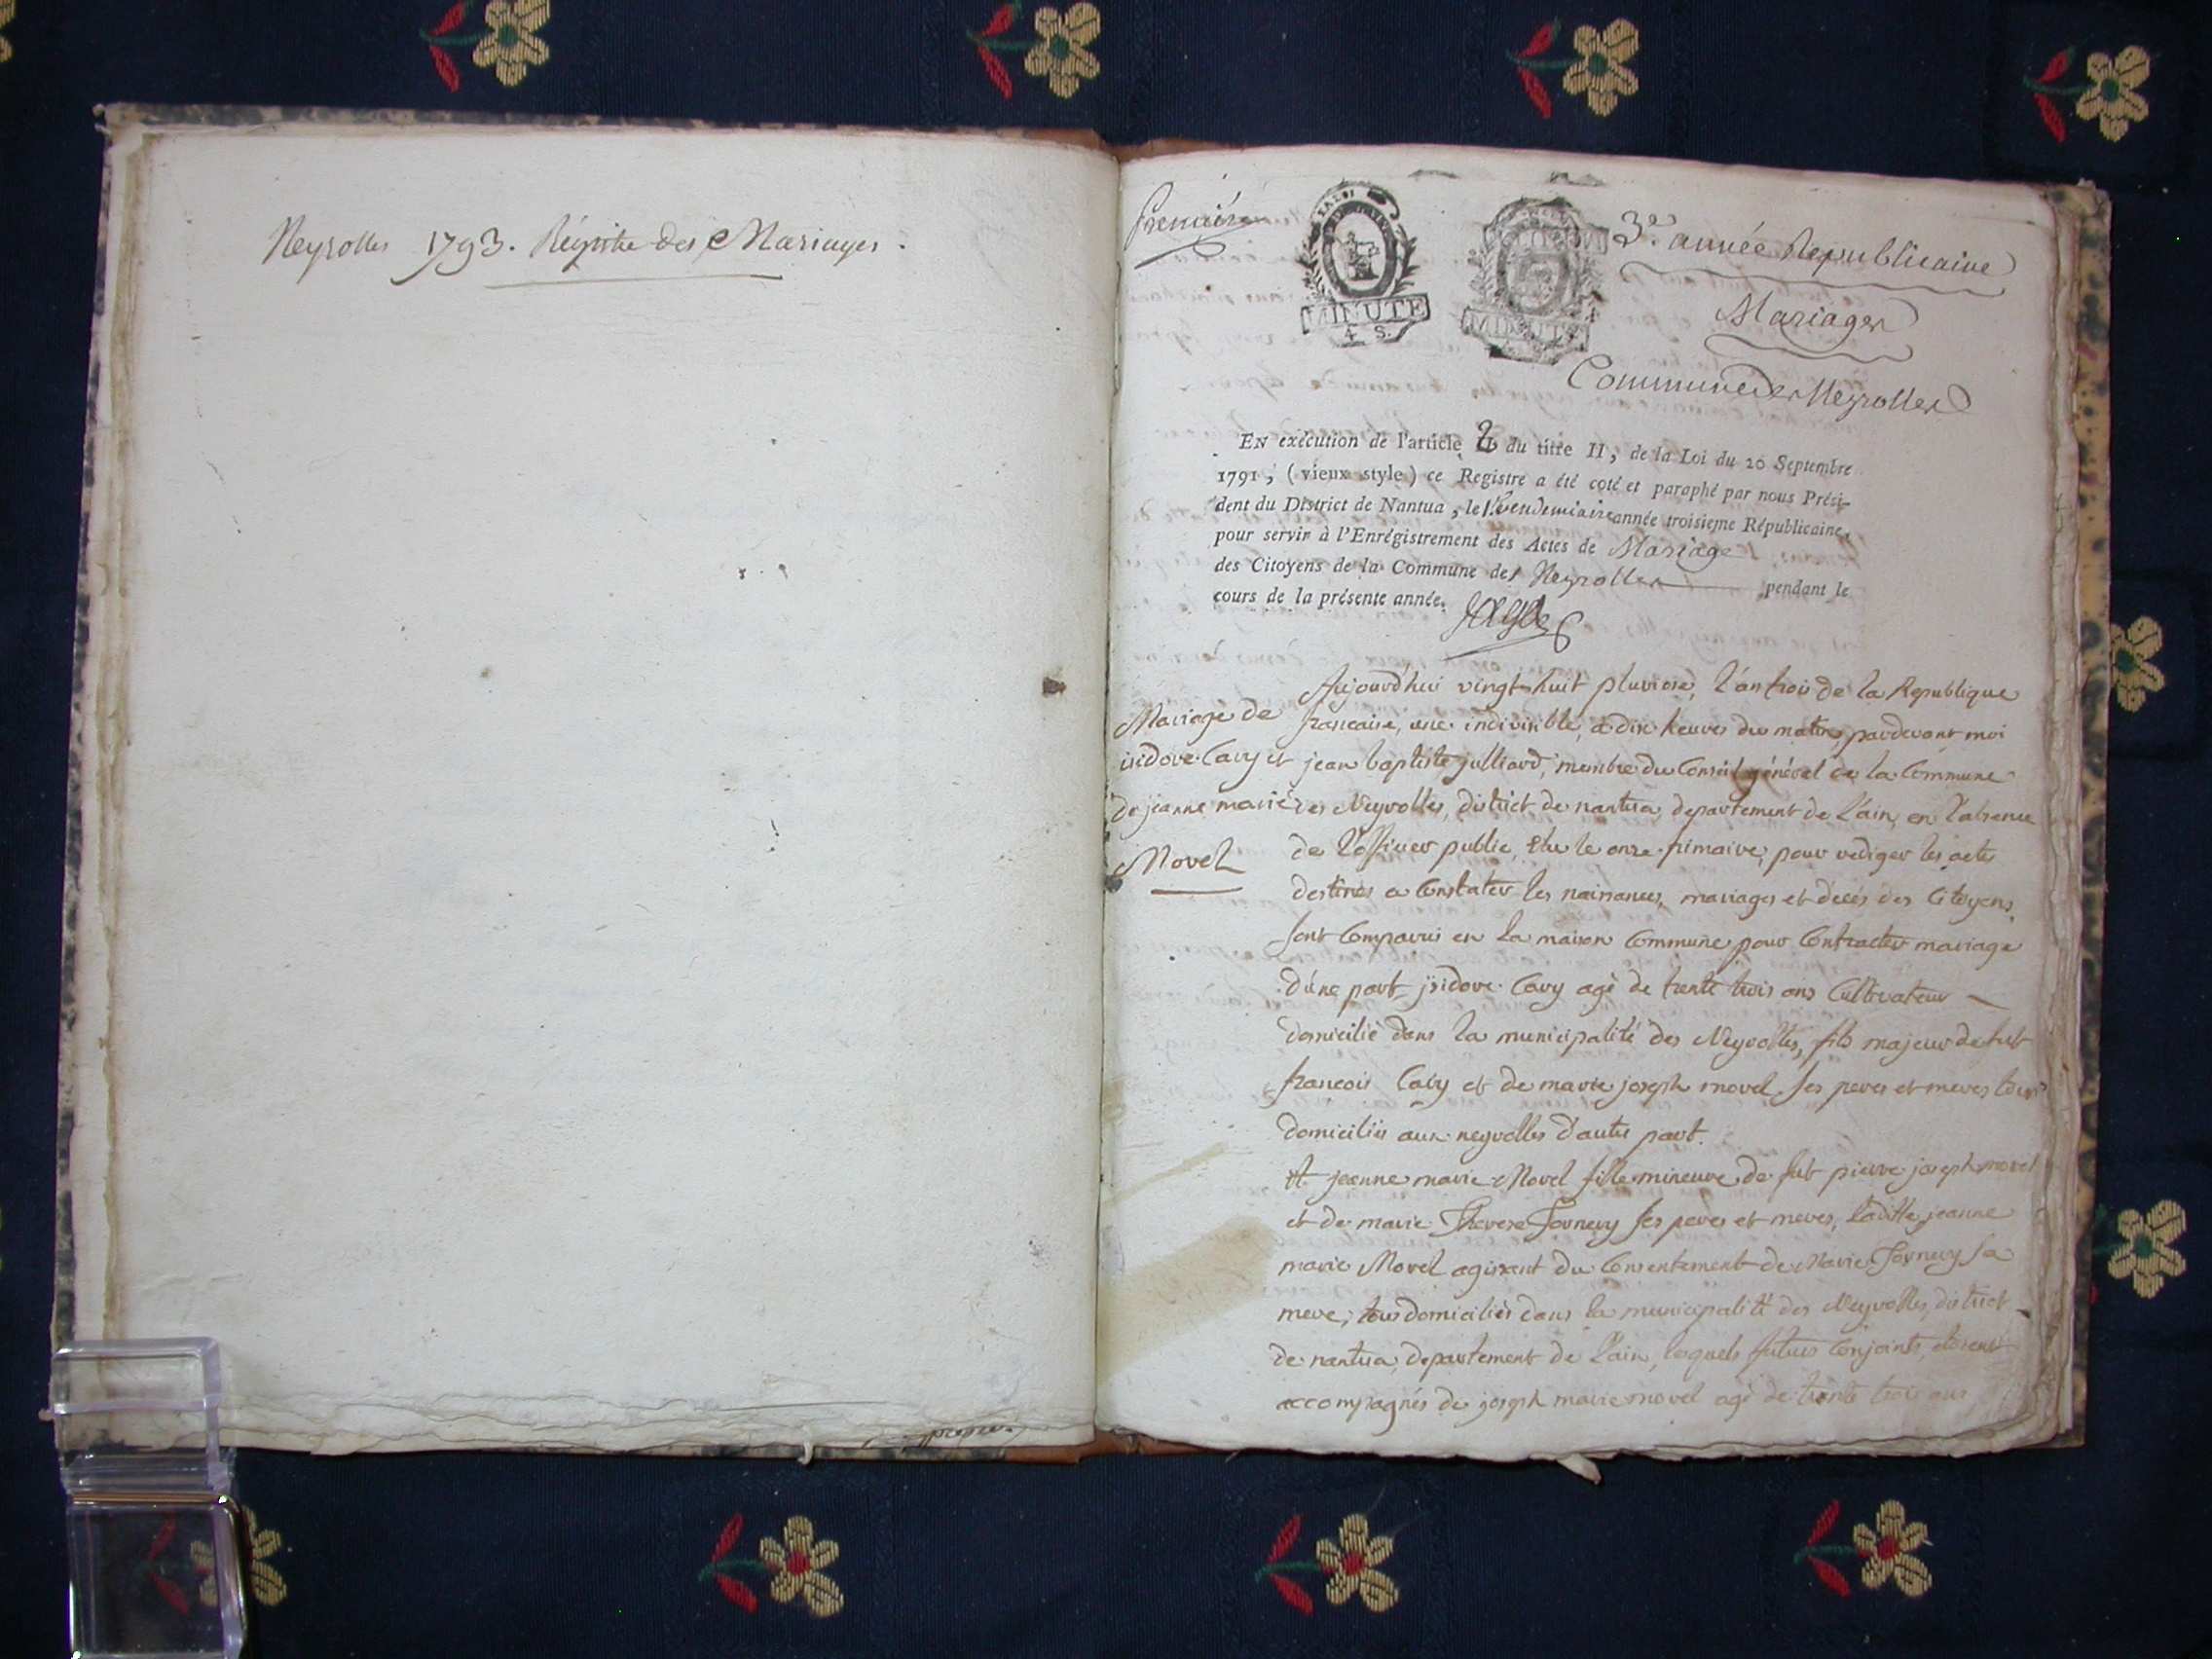 Neyrolles 1793. Régistre des Mariages.
première
MINUTE
4 S.
MINUTE
3e. année Republicaine
Mariages
Commune des Neyrolles
EN exécution de l'article 2 du titre II, de la Loi du 20 Septembre
1791, (vieux style) ce Registre a été coté et paraphé par nous Prési-
dent du District de Nantua, le 1er Vendemiaire année troisieme Républicaine,
pour servir à l'Enrégistrement des Actes de Mariage
des Citoyens de la Commune des Neyrolles pendant le
cours de la présente année.
Mariage de
isidore Cavy et
de jeanne marie
Movel
Aujourd'hui vingt huit pluviose, l'an trois de la Republique
francaise, une indivisible, a dix heures du matin, pardevant moi
jean baptiste julliard, membre du Conseil général de la Commune
des Neyrolles, district de nantua, departement de L'ain, en l'absence
de L'officier public, Elu le onze frimaire, pour rediger les actes
destinés a Constater les naissances, mariages et décés des Citoyens,
sont Comparus en la maison Commune pour Contracter mariage
d'une part, jsidore Cavy agé de trente trois ans Cultivateur
domicilié dans la municipalité des Neyrolles, fils majeur de fut
francois Cavy et de marie joseph movel ses peres et meres tous
domiciliés aux neyrolles d'autre part.
Et jeanne marie Movel fille mineure de fut pierre joseph movel
et de marie Therese Tornery ses peres et meres, laditte jeanne
marie Movel agissant du Consentement de Marie Tornery sa
mere, tous domiciliés dans la municipalité des Neyrolles, district
de nantua, departement de L'ain, lesquels futurs Conjoints, étoient
accompagnés de joseph marie movel agé de trente trois ans
propre.